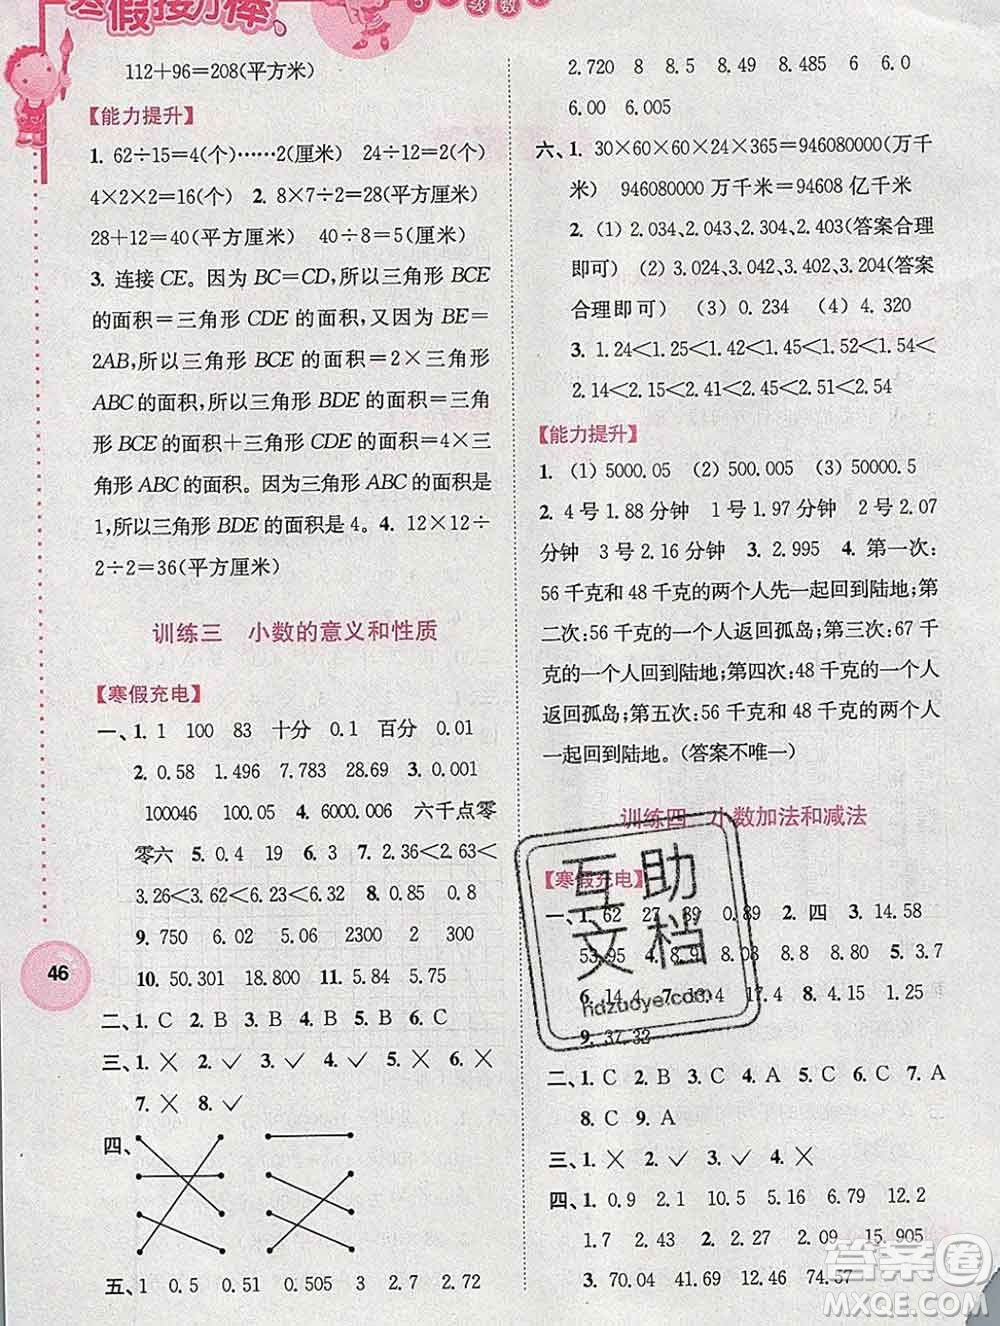 寒假接力棒
112+96=208(平方米)
【能力提升】
1. 62÷15=4(个)……2(厘米) 24÷12=2(个)
4×2×2=16(个) 2. 8×7÷2=28(平方厘米)
28+12=40(平方厘米) 40÷8=5(厘米)
3. 连接 CE。因为 BC=CD，所以三角形 BCE
的面积=三角形 CDE 的面积，又因为 BE=
2AB，所以三角形 BCE 的面积=2×三角形
ABC 的面积，所以三角形 BDE 的面积=三角
形 BCE 的面积+三角形 CDE 的面积=4×三
角形 ABC 的面积。因为三角形 ABC 的面积是
1，所以三角形 BDE 的面积是 4。 4. 12×12÷
2÷2=36(平方厘米)
训练三 小数的意义和性质
【寒假充电】
一、1. 1 100 83 十分 0.1 百分 0.01
2. 0.58 1.496 7.388 28.67 3. 0.001
100046 100.046 4. 6000.006 六千点零
零六 5. 0.4 19 6. 3 7. 2.36<2.63<
3.26<3.62<6.23<6.32 8. 0.85 0.9
9. 750 9.02 5.05 2300 2 0.87
10. 50.301 18.800 11. 5.65 5.75
二、1. C 2. B 3. A 4. B 5. B 6. C
三、1. × 2. ✓ 3. ✓ 4. ✓ 5. × 6. ×
7. × 8. ✓
四、
五、1 0.5 0.51 0.505 3 2.7 2.72
46
2.720 8 8.5 8.49 8.485 6 6.0
6.00 6.005
六、1. 30×60×60×24×365=946080000(万千
米) 946080000 万千米=94608 亿千米
2. (1) 2.034、2.043、2.304、2.403(答案合理
即可) (2) 3.024、3.042、3.402、3.204(答案
合理即可) (3) 0.234 (4) 4.320
3. 1.24<1.25<1.42<1.45<1.52<1.54<
2.14<2.15<2.41<2.45<2.51<2.54
【能力提升】
1. (1) 5000.05 (2) 500.005 (3) 50000.5
2. 4 号 1.88 分钟 1 号 1.97 分钟 2 号 2.07
分钟 3 号 2.16 分钟 3. 2.995 4. 第一次：
56 千克和 48 千克的两个人先一起回到陆地；第
二次：56 千克的一个人返回孤岛；第三次：72 千
克的一个人回到陆地；第四次：48 千克的一个人
返回孤岛；第五次：56 千克和 48 千克的两个人
一起回到陆地。(答案不唯一)
训练四 小数加法和减法
【寒假充电】
一、1. 62 27 89 0.89 2. 四 3. 14.58
53.95 4. 8.91 8.08 0.83 5. 3.7
6. 14.4 7. 13.4 17.4 8. 4.15 1.25
9. 37.32
二、1. C 2. B 3. C 4. A 5. C 6. C 7. A
8. C 9. A
三、1. × 2. ✓ 3. ✓ 4. ×
四、1. 0.9 2.1 10.5 5.16 6.79 12.2
1.7 2.43 2. 2.27 2 2.09 15.905
3. 70.04 41.69 12.46 74.57
互助
文档
hdzuoye.com
答案圈
MXQE.COM